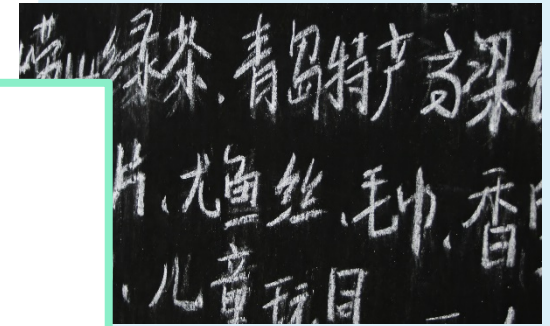 崂山绿茶、青岛特产高粱
片、尤鱼丝、毛巾、香
、儿童玩具